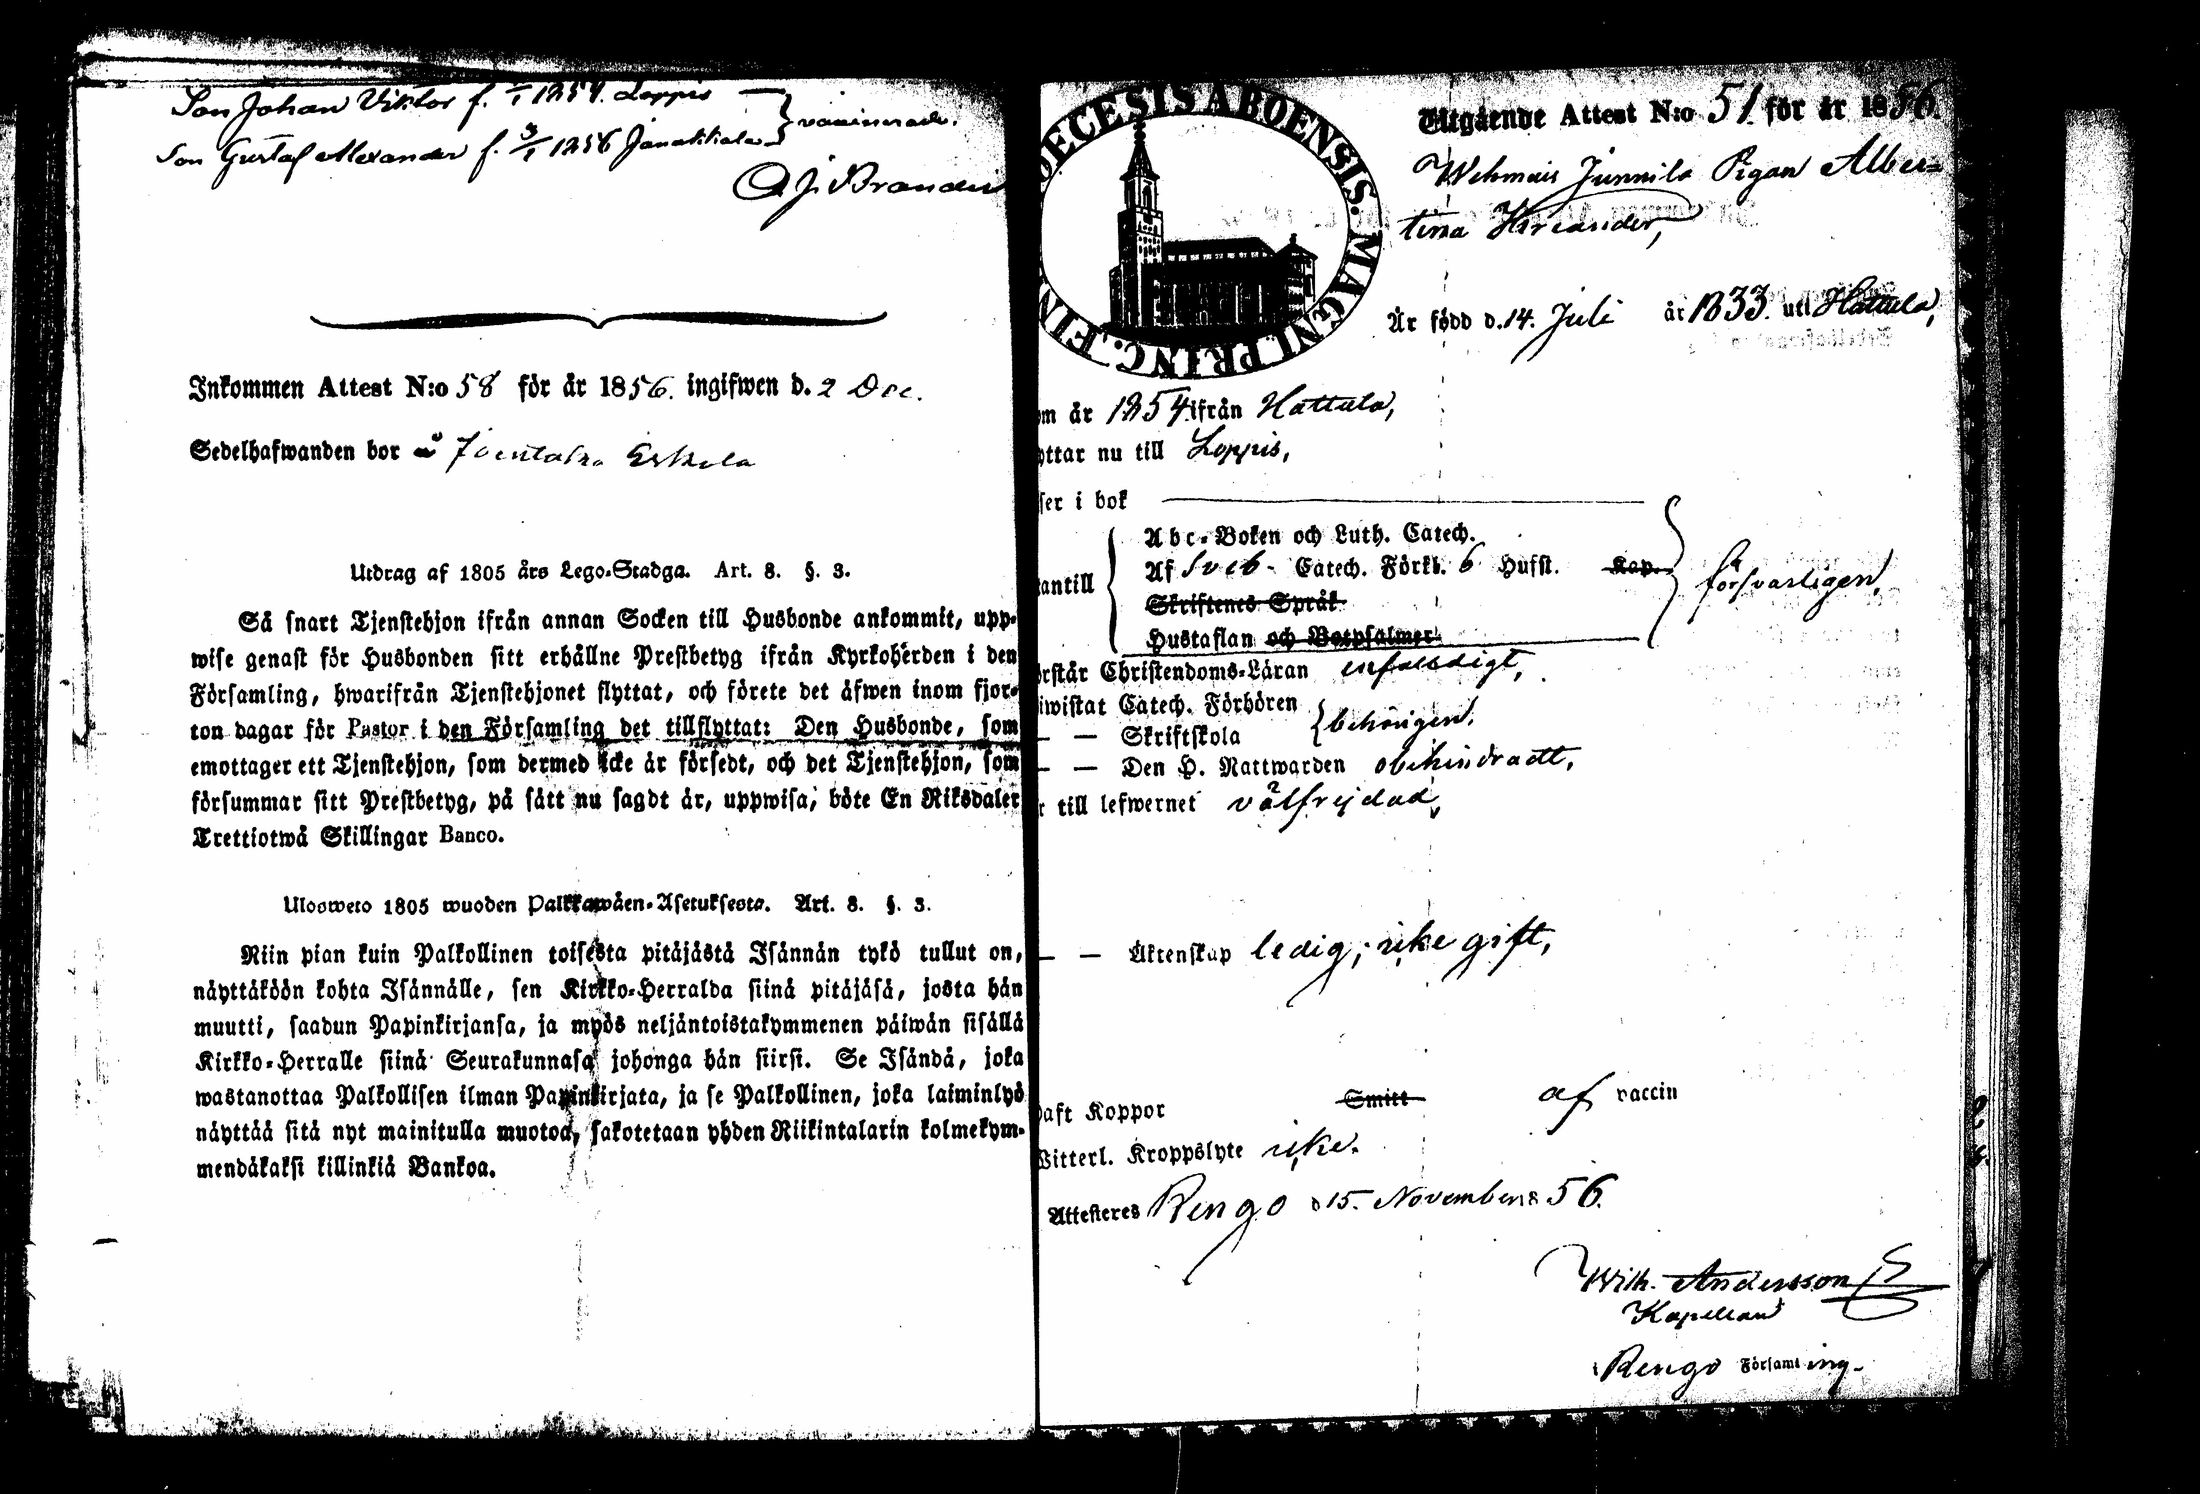 Son Johan Viktor f. 1854. Loppis
Son Gustaf Alexander f. 3/1 1856 Janakkala
vaccinerade.
A. J. Brander
Inkommen Attest N:o 58 för år 1856. ingifwen d. 2 Dec.
Sedelhafwanden bor å Joentaka Eskola
Utdrag af 1805 års Lego-Stadga. Art. 8. §. 3.
Så snart Tjenstehjon ifrån annan Socken till Husbonde ankommit, upp-
wise genast för Husbonden sitt erhållne Prestbetyg ifrån Kyrkoherden i den
Församling, hwarifrån Tjenstehjonet flyttat, och förete det äfwen inom fjor-
ton dagar för Pastor i den Församling det tillflyttat: Den Husbonde, som
emottager ett Tjenstehjon, som dermed icke är försedt, och det Tjenstehjon, som
försummar sitt Prestbetyg, på sätt nu sagdt är, uppwisa, böte En Riksdaler
Trettiotwå Skillingar Banco.
Ulosweto 1805 wuoden Palkkawäen-Asetuksesta. Art. 8. §. 3.
Niin pian kuin Palkollinen toisesta pitäjästä Isännän tykö tullut on,
näyttäköön kohta Isännälle, sen Kirkko-Herralda siinä pitäjäsä, josta hän
muutti, saadun Papinkirjansa, ja myös neljäntoistakymmenen päiwän sisällä
Kirkko-Herralle siinä Seurakunnasa johonga hän siirsi. Se Isändä, joka
wastanottaa Palkollisen ilman Papinkirjata, ja se Palkollinen, joka laiminlyö
näyttää sitä nyt mainitulla muotoa, sakotetaan yhden Riikintalarin kolmekym-
mendäkaksi killinkiä Bankoa.
DIOECESIS ABOENSIS. MAGNI PRINC. FIN
Utgående Attest N:o 51. för år 1856.
Wehmais Junnila Pigan Alber=
tina Kreander,
Är född d. 14. Juli år 1833. uti Hattula,
om år 1854. ifrån Hattula,
yttar nu till Loppis,
ser i bok
Abc-Boken och Luth. Catech.
Af Sveb- Catech. Förkl. 6 Hufst. Kap.
antill
försvarligen,
Skriftenes Språk
Hustaflan och Botpsalmer
örstår Christendoms-Läran enfaldigt,
iwistat Catech. Förhören
behörigen.
— — Skriftskola
— — Den H. Nattwarden obehindradt,
r till lefwernet välfrejdad,
— — Äktenskap ledig; icke gift,
haft Koppor Smitt af vaccin
Witterl. Kroppslyte icke.
Attesteres Rengo d 15. November 18 56.
Wilh. Andersson
Kapellan
i Rengo Församling.